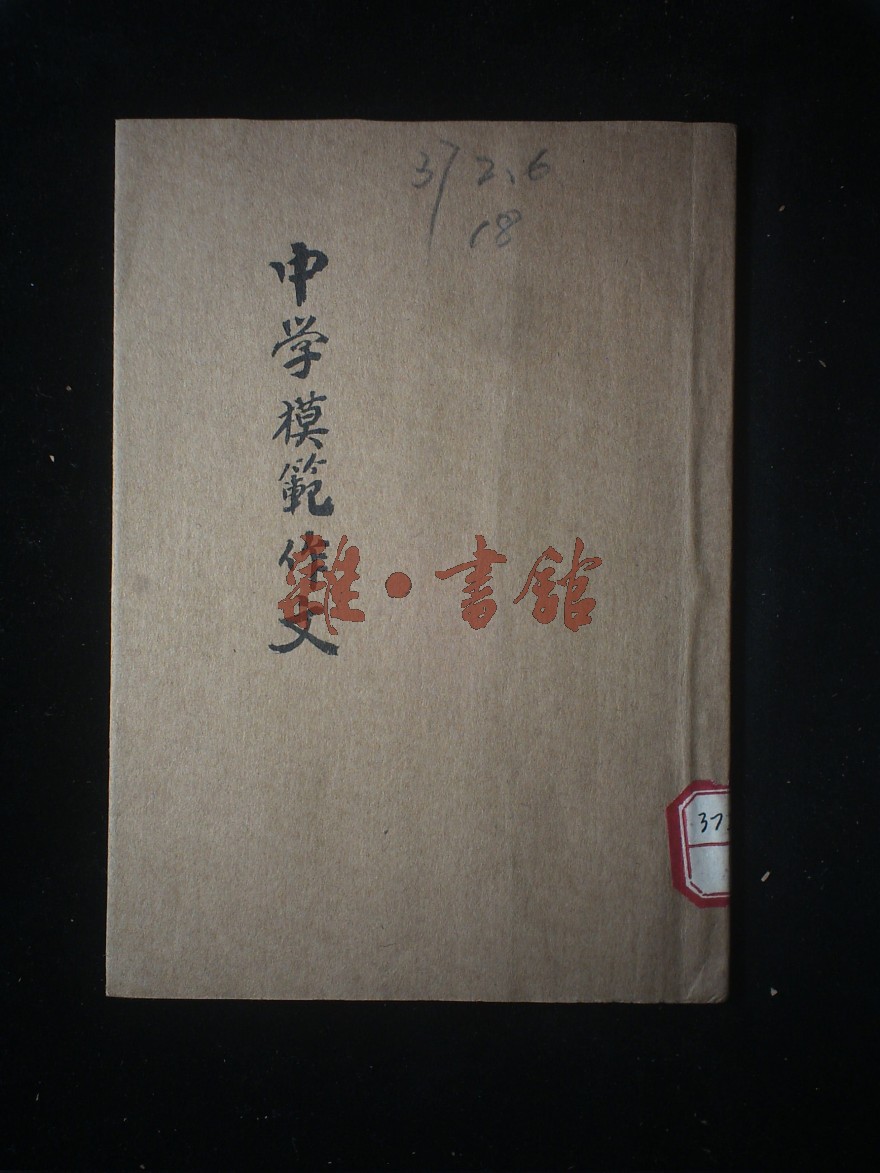 372.6
18
中学模範作文
雜·書館
37